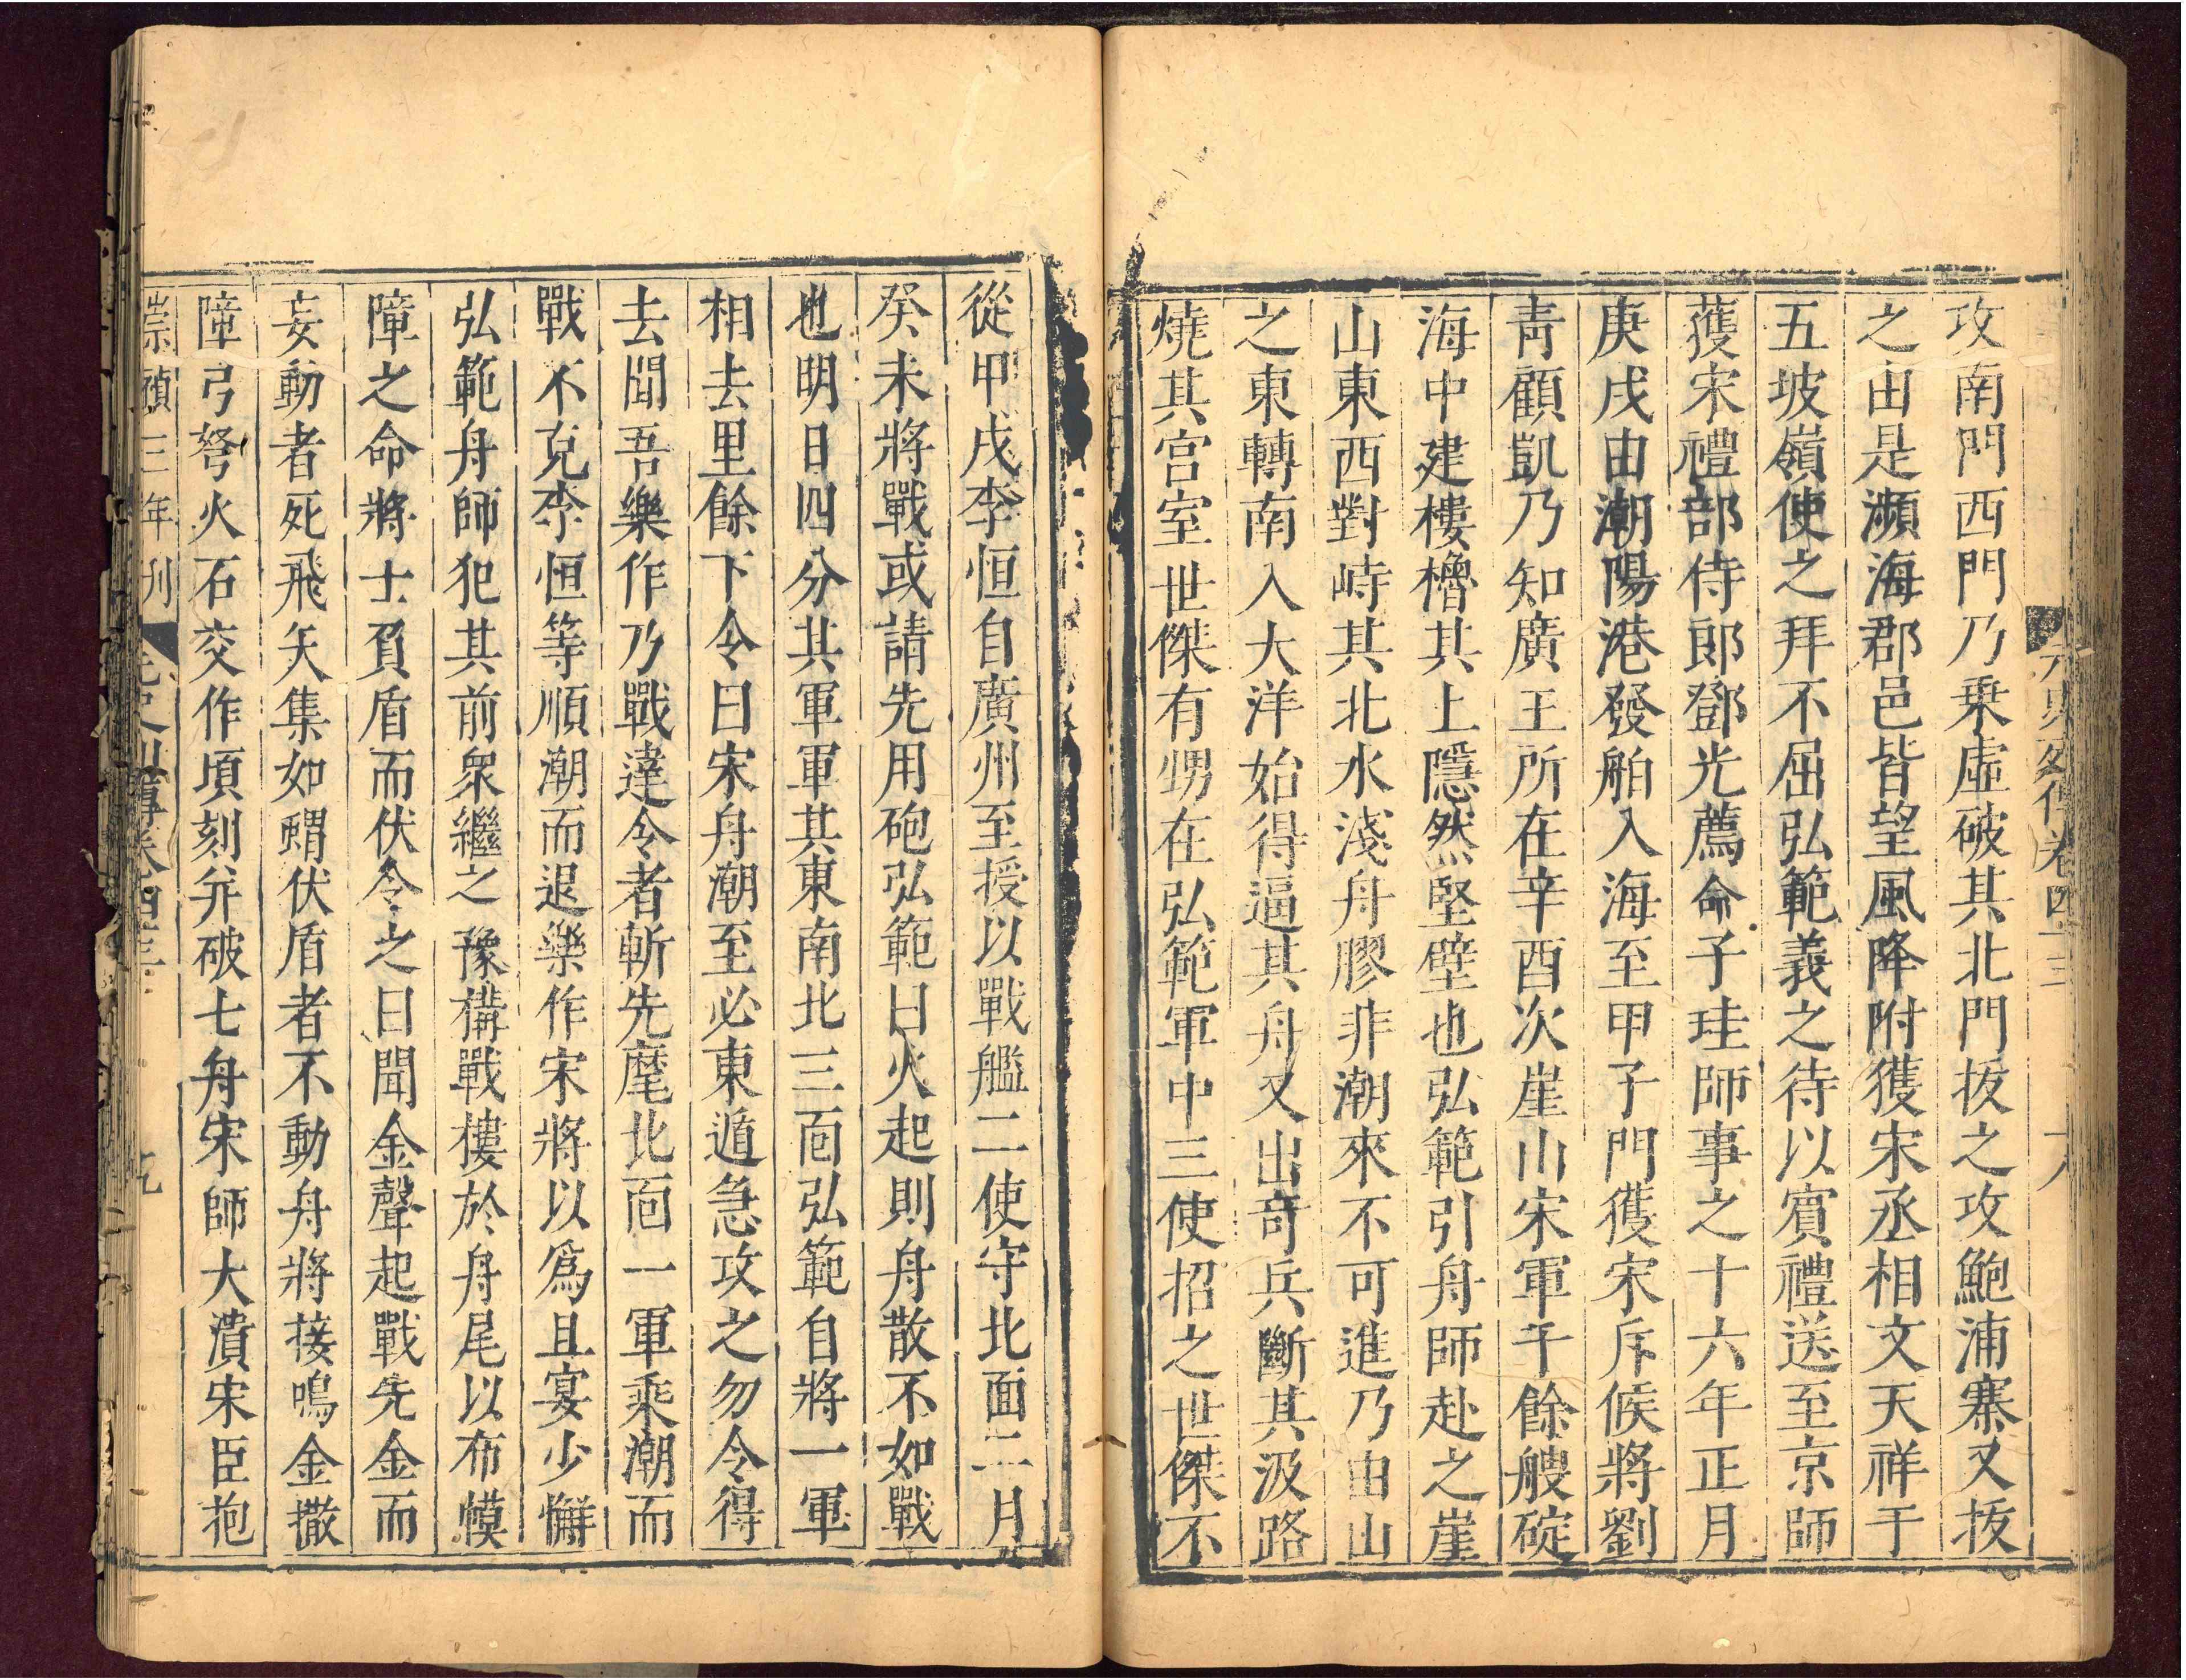 元史列傳卷四十三 十八
攻南門西門乃乗虛破其北門拔之攻鮑浦寨又拔
之由是瀕海郡邑皆望風降附獲宋丞相文天祥于
五坡嶺使之拜不屈弘範義之待以賓禮送至京師
獲宋禮部侍郎鄧光薦命子珪師事之十六年正月
庚戌由潮陽港發舶入海至甲子門獲宋斥候將劉
青顧凱乃知廣王所在辛酉次崖山宋軍千餘艘碇
海中建樓櫓其上隱然堅壁也弘範引舟師赴之崖
山東西對峙其北水淺舟膠非潮來不可進乃由山
之東轉南入大洋始得逼其舟又出奇兵斷其汲路
燒其宮室世傑有甥在弘範軍中三使招之世傑不
從甲戌李恒自廣州至授以戰艦二使守北面二月
癸未將戰或請先用砲弘範曰火起則舟散不如戰
也明日四分其軍軍其東南北三面弘範自將一軍
相去里餘下令曰宋舟潮至必東遁急攻之勿令得
去聞吾樂作乃戰違令者斬先麾北面一軍乘潮而
戰不克李恒等順潮而退樂作宋將以爲且宴少懈
弘範舟師犯其前衆繼之豫構戰樓於舟尾以布幙
障之命將士負盾而伏令之曰聞金聲起戰先金而
妄動者死飛矢集如蝟伏盾者不動舟將接鳴金撤
障弓弩火石交作頃刻并破七舟宋師大潰宋臣抱
崇禎三年刊 元史列傳卷四十三 十九